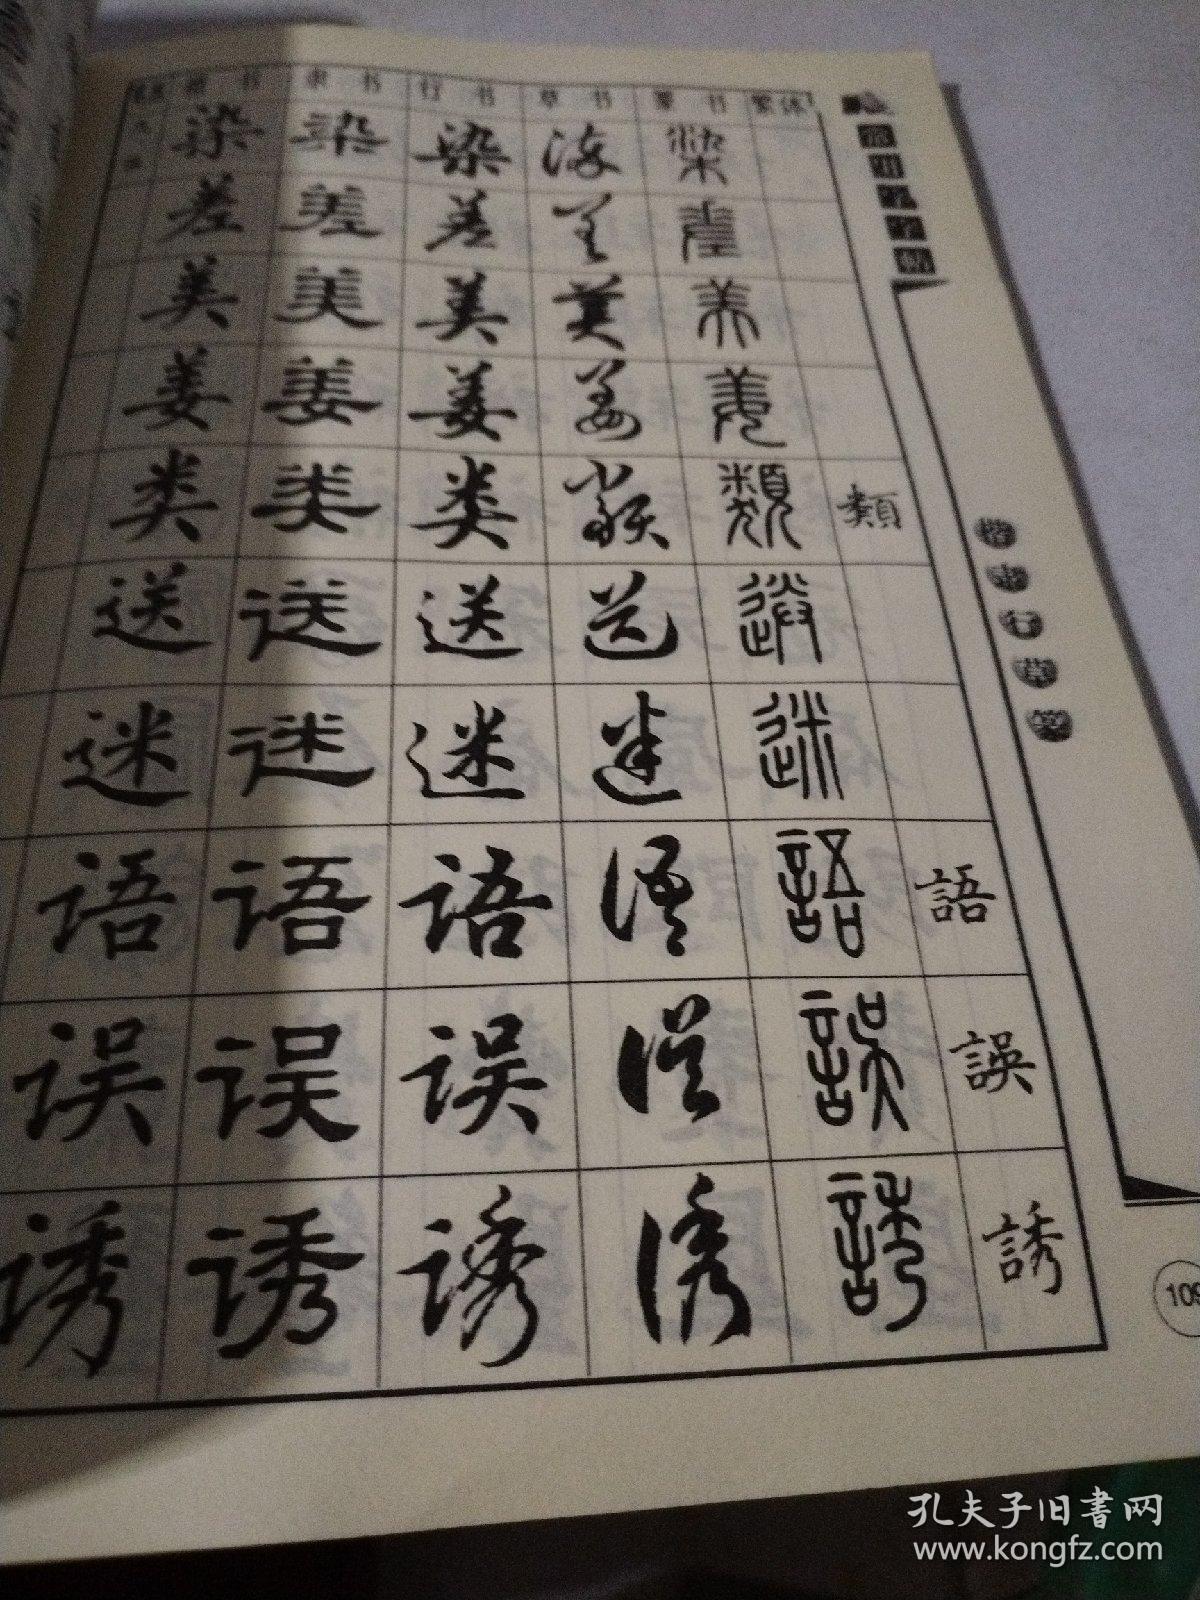 楷书 隶书 行书 草书 篆书 繁体
九画
染 染 染 染 染
差 差 差 差 差
美 美 美 美 美
姜 姜 姜 姜 姜
类 类 类 類 類 類
送 送 送 送 送
迷 迷 迷 迷 迷
语 语 语 語 語 語
误 误 误 誤 誤 誤
诱 诱 诱 誘 誘 誘
常用字字帖
楷隶行草篆
109
孔夫子旧書网
www.kongfz.com